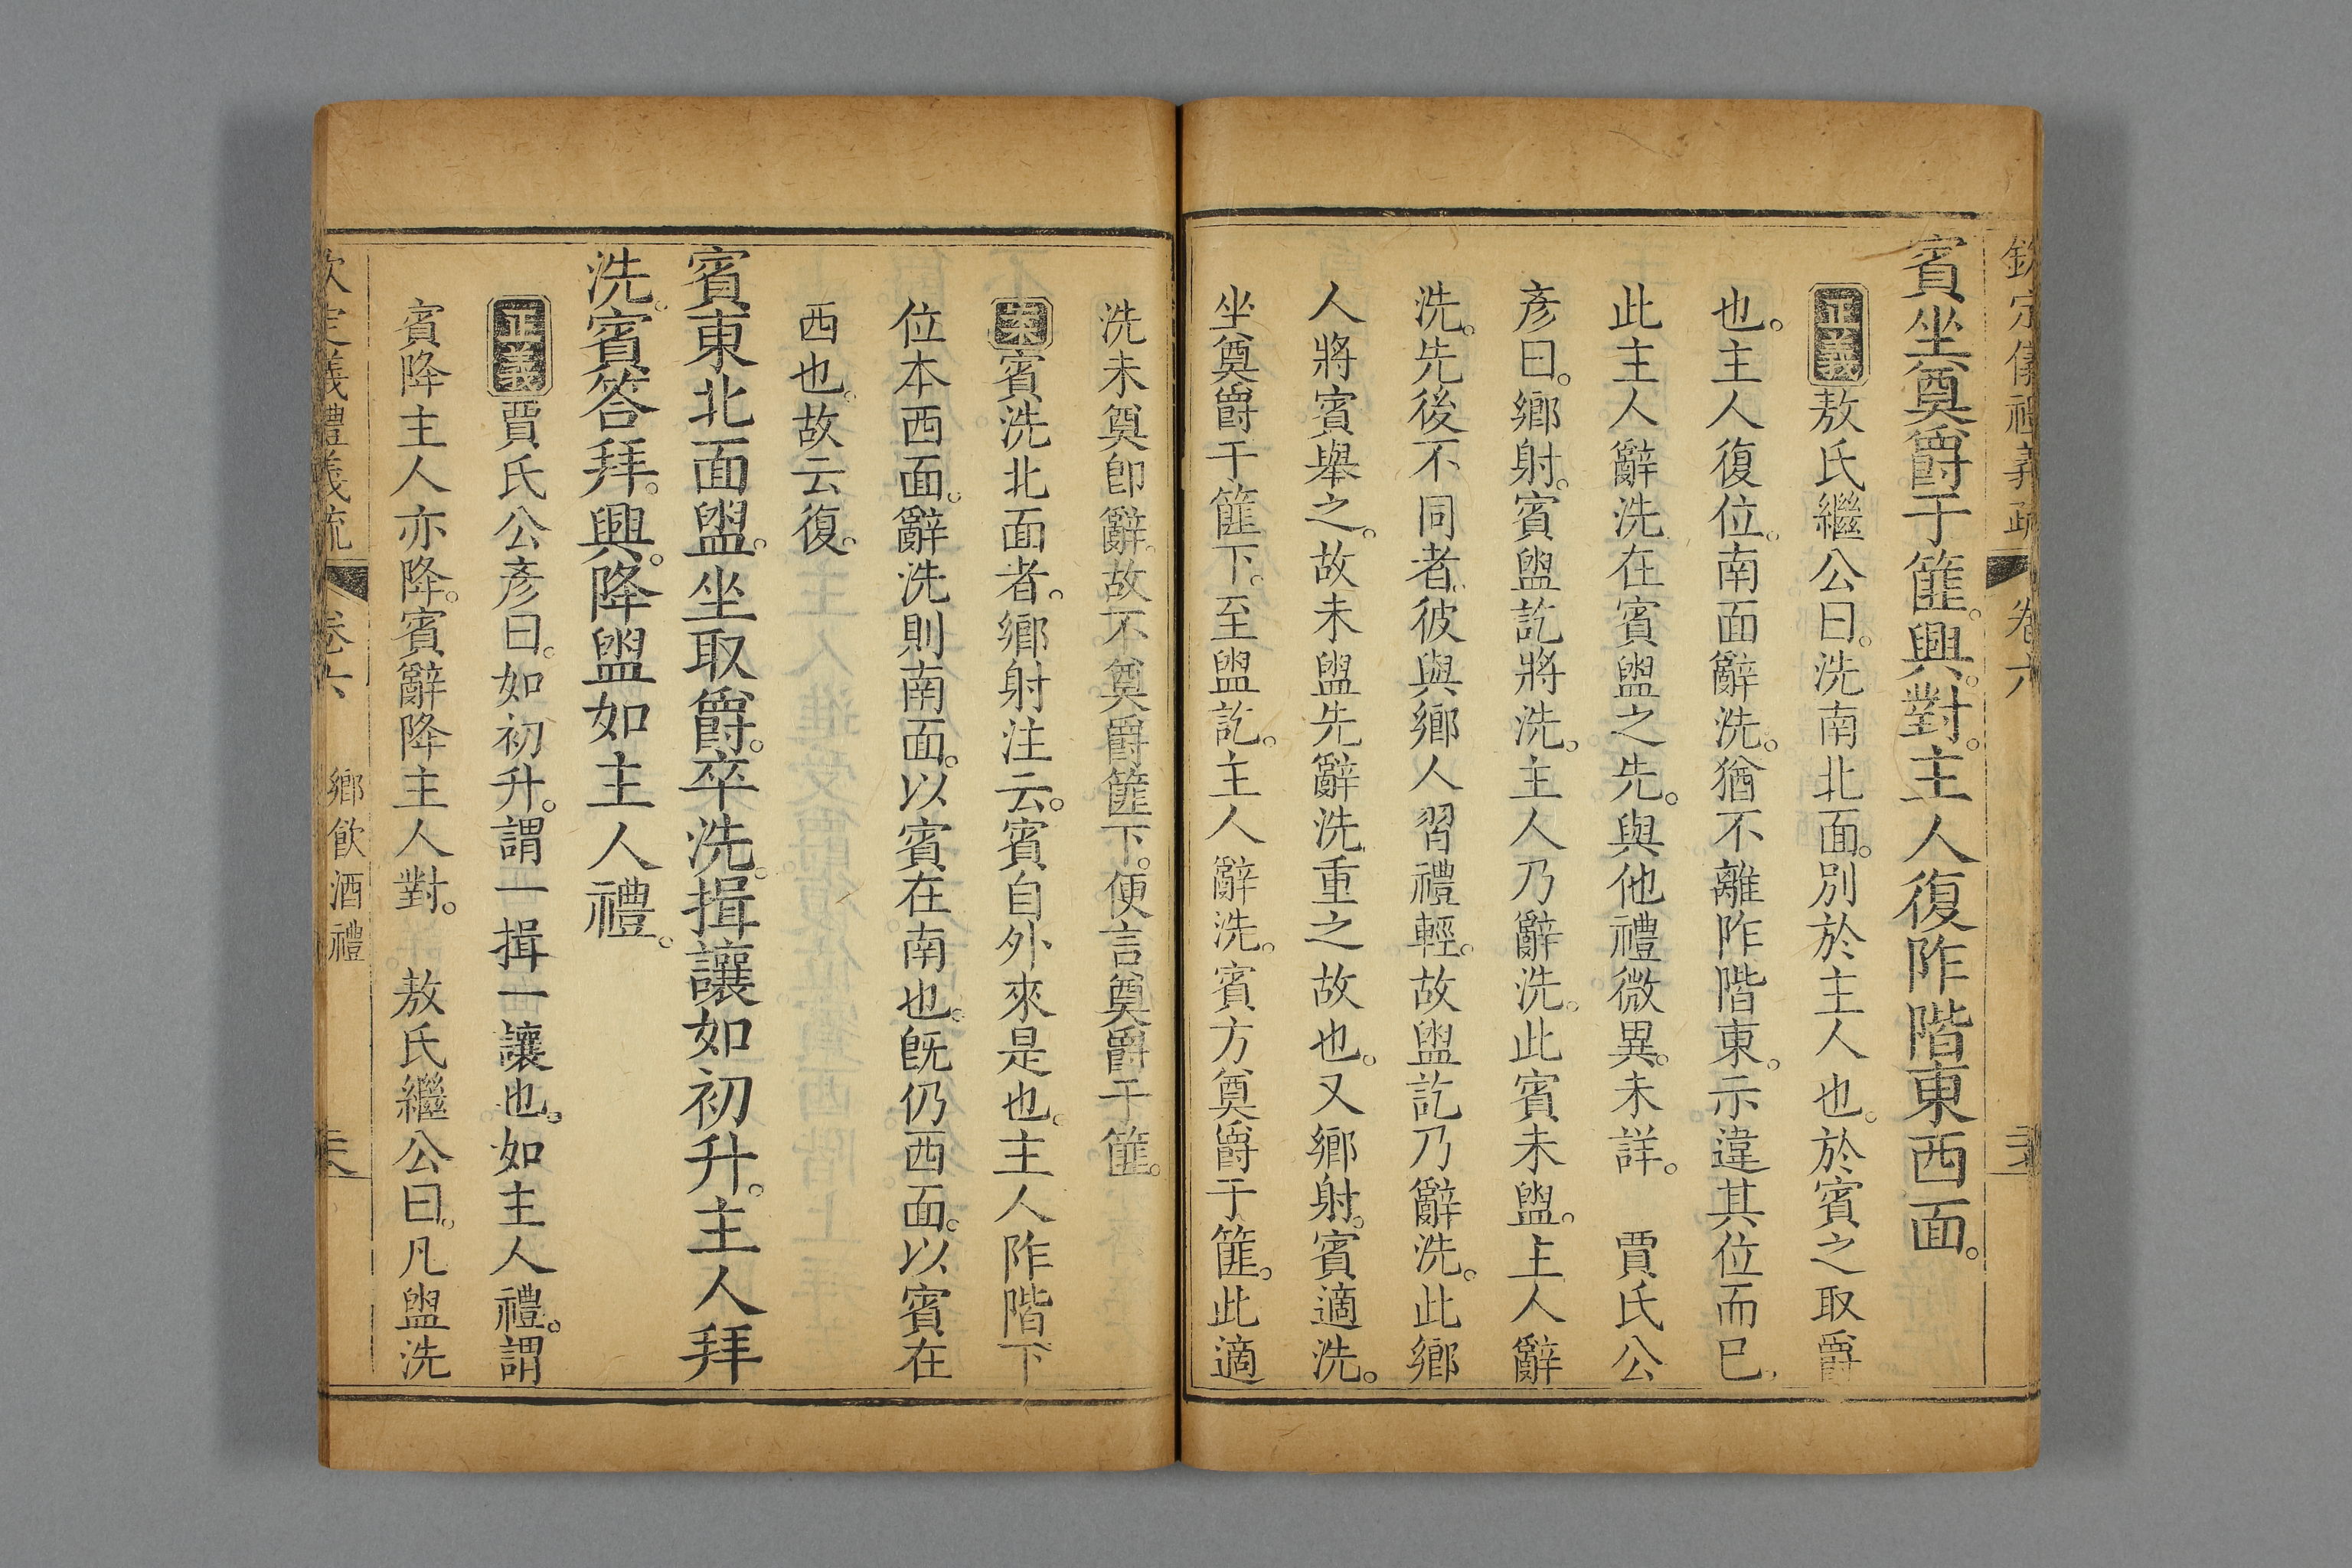 欽定儀禮義疏 卷六
賓坐奠爵于篚。興對。主人復阼階東西面。
正義 敖氏繼公曰。洗南北面。別於主人也。於賓之取爵
也。主人復位。南面辭洗。猶不離阼階東。示違其位而巳。
此主人辭洗在賓盥之先。與他禮微異。未詳。 賈氏公
彥曰。鄉射。賓盥訖將洗。主人乃辭洗。此賓未盥。主人辭
洗。先後不同者。彼與鄉人習禮輕。故盥訖乃辭洗。此鄉
人將賓舉之。故未盥先辭洗。重之故也。又鄉射。賓適洗。
坐奠爵于篚下。至盥訖。主人辭洗。賓方奠爵于篚。此適
洗未奠卽辭。故不奠爵篚下。便言奠爵于篚。
案 賓洗北面者。鄉射注云。賓自外來是也。主人阼階下
位本西面。辭洗則南面。以賓在南也。旣仍西面。以賓在
西也。故云復。
賓東北面盥。坐取爵。卒洗。揖讓如初升。主人拜
洗。賓答拜。興。降盥如主人禮。
正義 賈氏公彥曰。如初升。謂一揖一讓也。如主人禮。謂
賓降主人亦降。賓辭降主人對。 敖氏繼公曰。凡盥洗
欽定儀禮義疏 卷六 鄉飲酒禮